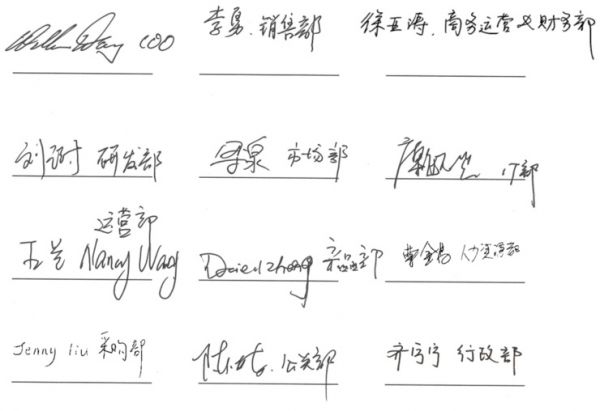 William Wang COO
李勇.销售部
徐亚涛.商务运营及财务部
研发部
市场部
IT部
运营部
王兰 Nancy Wang
Daniel zhang 产品部
人力资源部
Jenny liu 采购部
公关部
齐宁宁 行政部